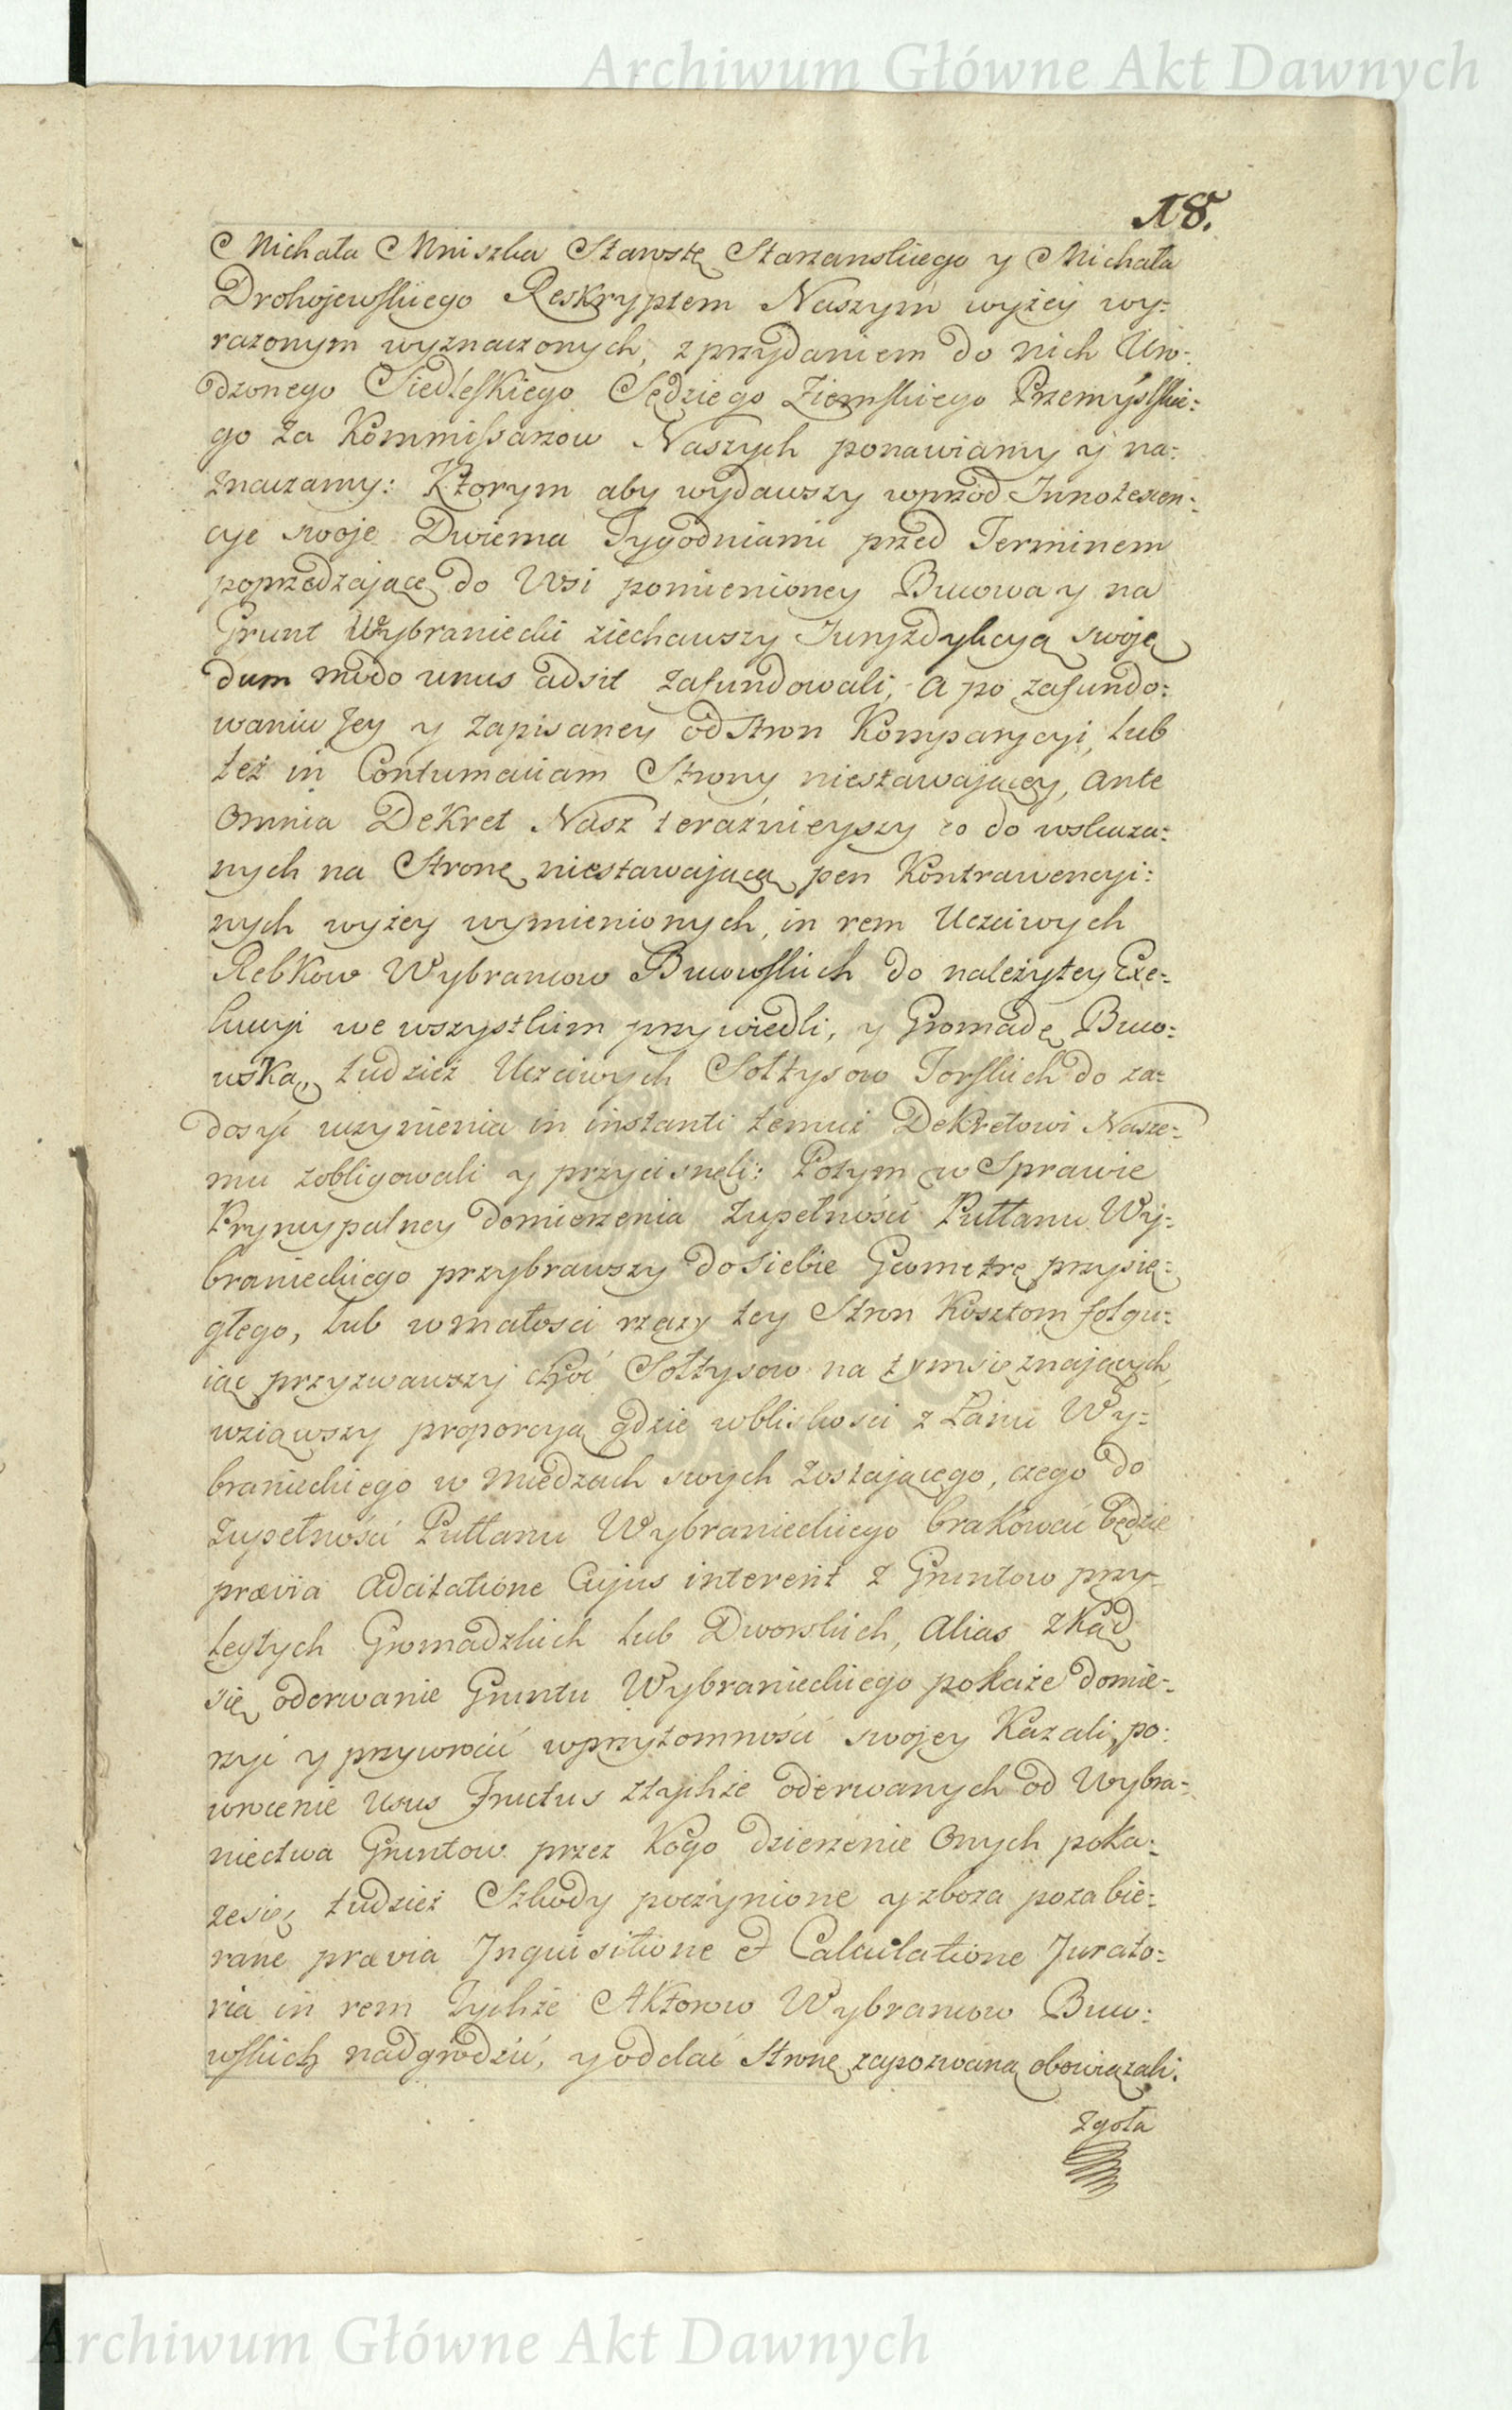 Archiwum Główne Akt Dawnych
18.
Michała Mniszka Stawstę Starzanskiego y Michała
Drohojewskiego Reskryptem Naszym wyżey wy:
razonym wyznaczonych, z przydaniem do nich Uro:
dzonego Siedleskiego Sędziego Ziemskiego Przemyslskie:
go za Kommissarzow Naszych ponawiamy y na:
znaczamy: Ktorym aby wydawszy wprzod Innotescen:
cye swoje Dwiema Tygodniami przed Terminem
poprzedzające do Wsi pomienioney Bucowa y na
Grunt Wybraniecki ziechawszy Juryzdykcyą swoję
dum modo unus adsit zafundowali, a po zafundo:
waniu Jey y zapisaney od Stron Komparycyi, lub
też in Contumaciam Strony niestawającey, ante
omnia Dekret Nasz teraznieyszy co do wskaza:
nych na Stronę niestawającą pen Kontrawencyi:
nych wyżey wymienionych, in rem Uczciwych
Rebkow Wybrancow Bucowskich do należytey Exe:
kucyi we wszystkim przywiedli, y Gromadę Buco:
wską, tudzież Uczciwych Sołtysow Torskich do za:
dosyć uczynienia in instanti temuż Dekretowi Nasze:
mu zobligowali y przycisneli: Potym w Sprawie
Pryncypalney domierzenia zupełności Pułłanu Wy:
branieckiego przybrawszy do siebie Geometrę przysię:
głego, lub w małosci rzeczy tey Stron Kosztom folgu:
iąc przyzwawszy choć Sołtysow na tym się znających
wziąwszy proporcyą gdzie w bliskosci z Łanu Wy:
branieckiego w miedzach swych zostającego, czego do
zupełności Pułłanu Wybranieckiego brakować będzie
prævia adcitatione Cujus intererit z Gruntow przy:
ległych Gromadzkich lub Dworskich, alias zkąd
się oderwanie Gruntu Wybranieckiego pokaże domie:
rzyć y przywrocić w przytomności swojey Kazali, po:
wrocenie usus Fructus z tychże oderwanych od Wybra:
niectwa Gruntow przez Kogo dzierzenie onych poka:
ze się, tudzież Szkody poczynione y zboza pozabie:
rane prævia Inquisitione et Calculatione Jurato:
ria in rem Tychże Aktorow Wybrancow Buco:
wskich nadgrodzić, y oddać Stronę zapozwaną obowiązali:
Zgoła
Archiwum Główne Akt Dawnych